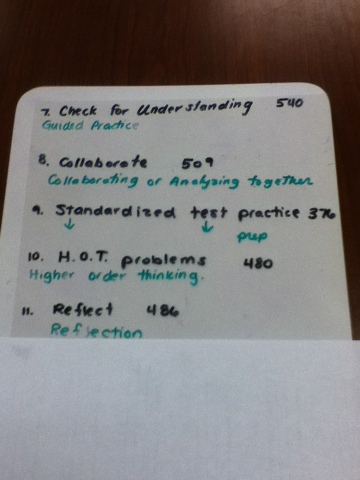 7. Check for Understanding 540
Guided Practice
8. Collaborate 509
Collaborating or Analyzing together
9. Standardized test practice 376
↓ ↓ prep
10. H.O.T. problems 480
Higher order thinking.
11. Reflect 486
Reflection